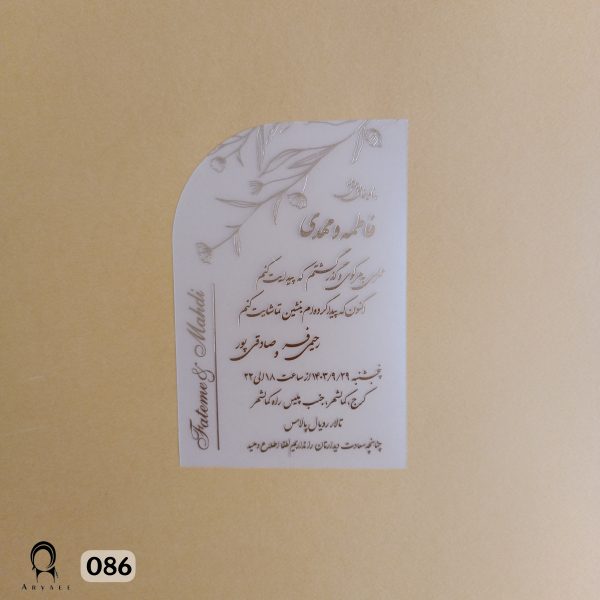 فاطمه و مهدی
عمری به هر کوی و گذر گشتم که پیدایت کنم
اکنون که پیدا کرده‌ام بنشین تماشایت کنم
رحیمی فر و صادقی پور
پنجشنبه ۱۴۰۳/۹/۲۹ از ساعت ۱۸ الی ۲۲
کرج، کمالشهر، جنب پلیس راه کمالشهر
تالار رویال پالاس
چنانچه سعادت دیدارتان را نداریم لطفا اطلاع دهید
Fateme & Mahdi
ARYAEE
086